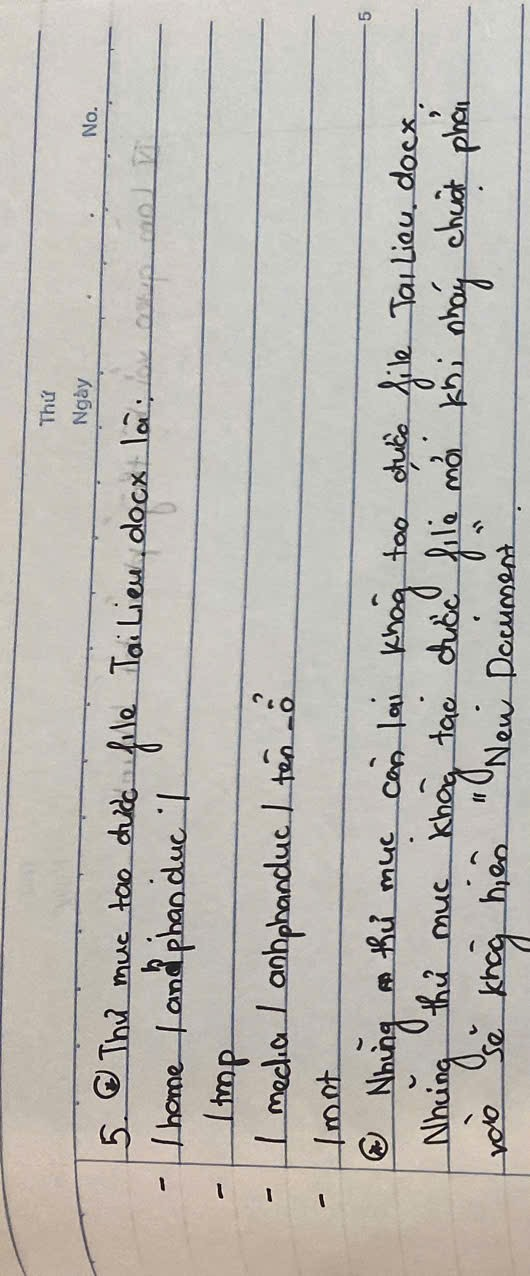 Thứ
Ngày
No.
5. * Thư mục tạo được file TaiLieu.docx là:
- /home/anhphanduc/
- /tmp
- /media/anhphanduc/tên_ổ
- /mnt
* Những thư mục còn lại không tạo được file TaiLieu.docx.
Những thư mục không tạo được file mới khi nháy chuột phải
vào sẽ không hiện "New Document".
5